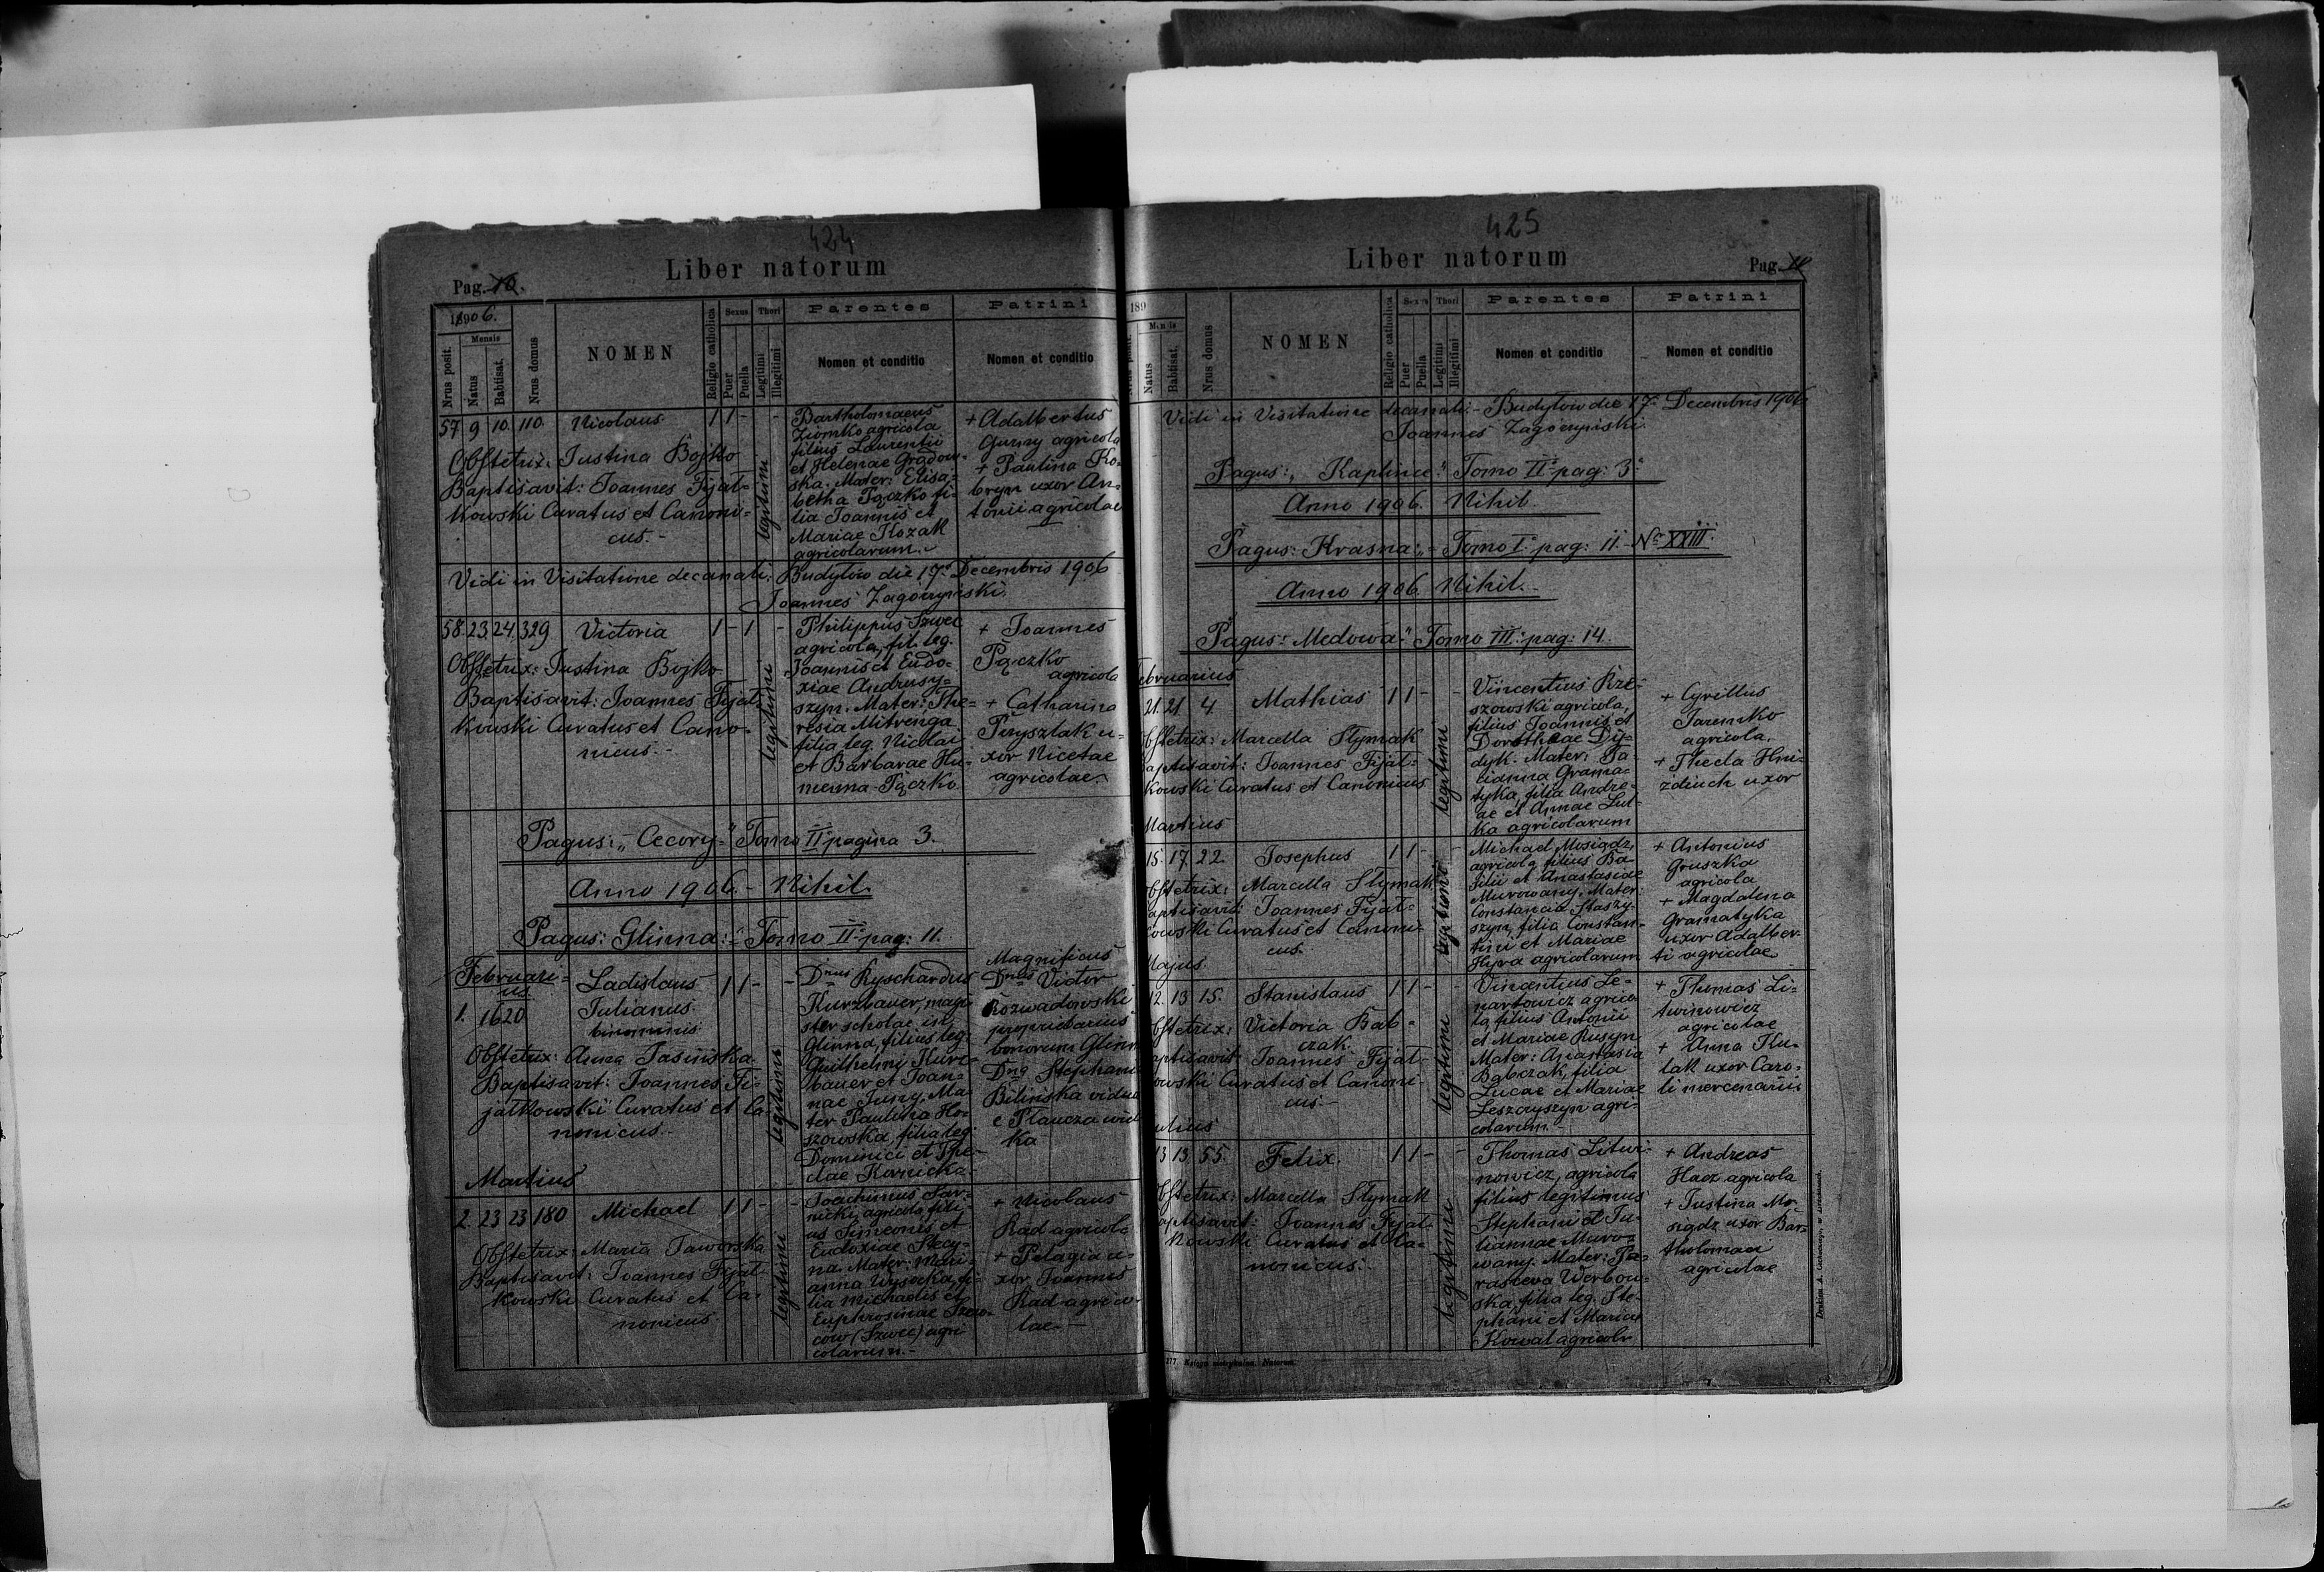 424
Liber natorum
Pag. 10.
1906.
Mensis
Nrus posit.
Natus
Babtisat.
Nrus domus
NOMEN
Religio catholica
Sexus
Puer
Puella
Thori
Legitimi
Illegitimi
Parentes
Nomen et conditio
Patrini
Nomen et conditio
57 9 10. 110. Nicolaus 1 1 - -
Obstetrix: Justina Bojko
Baptisavit: Joannes Fijał=
kowski Curatus et Canoni=
cus.-
legitimi
Bartholomaeus
Ziomko agricola
filius Laurentii
et Helenae Gradow=
ska. Mater: Elisa=
betha Pączko fi=
lia Joannis et
Mariae Kozak
agricolarum.
+ Adalbertus
Gurny agricola
+ Paulina Ko=
bryn uxor An=
tonii agricolae
Vidi in Visitatione decanali. Budyłów die 17. Decembris 1906
Joannes Zagórzyński.
58. 23. 24. 329 Victoria 1 - 1 -
Obstetrix: Justina Bojko
Baptisavit: Joannes Fijał=
kowski Curatus et Cano=
nicus.-
legitimi
Philippus Szwec
agricola, fil. leg.
Joannis et Eudo=
xiae Andrusy=
szyn. Mater: The=
resia Mitrenga
filia leg. Nicolai
et Barbarae Hu=
menna-Pączko.
+ Joannes
Pączko
agricola
+ Catharina
Pryszlak u=
xor Nicetae
agricolae
Pagus: „Cecory" Tomo II pagina 3.
Anno 1906. - Nihil.
Pagus: Glinna: Tomo II pag: 11.
Februari=
us
1. 16 20 Ladislaus 1 1 - -
Julianus
binominis
Obstetrix: Anna Jasińska
Baptisavit: Joannes Fi=
jałkowski Curatus et Ca=
nonicus.-
legitimi
Dnus Ryschardus
Kurzbauer, magi=
ster scholae in
Glinna, filius leg.
Guilhelmi Kurz=
bauer et Joan=
nae Juny. Ma=
ter Paulina Ho=
szowska, filia leg.
Dominici et The=
clae Kornicka
Magnificus
Dnus Victor
Rozwadowski
proprietarius
bonorum Glinna
Dna Stephania
Bilińska vidua
e Płaucza wiel
ka
Martius
2. 23 23 180 Michael 1 1 - -
Obstetrix: Maria Jaworska
Baptisavit: Joannes Fijał=
kowski Curatus et Ca=
nonicus
legitimi
Joachimus Sar=
nicki, agricola, fili=
us Simeonis et
Eudoxiae Stecy=
na. Mater: Mari=
anna Wysocka, fi=
lia Michaelis et
Euphrosinae Szew=
ców (Szwec) agri=
colarum.-
+ Nicolaus
Rad agricola
+ Pelagia u=
xor Joannis
Rad agrico=
lae.-
425
Liber natorum
Pag. 11
189
Mensis
Nrus posit.
Natus
Babtisat.
Nrus domus
NOMEN
Religio catholica
Sexus
Puer
Puella
Thori
Legitimi
Illegitimi
Parentes
Nomen et conditio
Patrini
Nomen et conditio
Vidi in Visitatione decanali.- Budyłów die 17. Decembris 1906.
Joannes Zagórzyński.
Pagus: „Kaplince" Tomo II pag: 3.
Anno 1906. Nihil
Pagus: Krasna: Tomo I pag: 11. - No XXIII.
Anno 1906. Nihil.
Pagus: Medowa: Tomo III. pag: 14.
Februarius
21. 21. 4. Mathias 1 1 - -
Obstetrix: Marcella Stymak
Baptisavit: Joannes Fijał=
kowski Curatus et Canonicus
legitimi
Vincentius Rze=
szowski agricola,
filius Joannis et
Dorotheae Dy=
dyk. Mater: Ta=
cianna Grama=
tyka, filia Andre=
ae et Annae Lul=
ka agricolarum
+ Cyrillus
Jaremko
agricola.
+ Thecla Hni=
zdiuch uxor
Martius
15. 17. 22. Josephus 1 1 - -
Obstetrix: Marcella Stymak
Baptisavit: Joannes Fijał=
kowski Curatus et Canoni=
cus.
legitimi
Michael Mosiądz,
agricola filius Ba=
silii et Anastasiae
Murowany. Mater:
Constancia Staszy=
szyn, filia Constan=
tini et Mariae
Hyra agricolarum
+ Antonius
Gruszka
agricola
+ Magdalena
Gramatyka
uxor Adalber=
ti agricolae
Majus
12. 13. 15. Stanislaus 1 1 - -
Obstetrix: Victoria Bab=
czak.
Baptisavit: Joannes Fijał=
kowski Curatus et Canoni=
cus.-
legitimi
Vincentius Le=
nartowicz agrico=
la, filius Antonii
et Mariae Rusyn
Mater: Anastasia
Babczak, filia
Lucae et Mariae
Leszczyszyn agri=
colarum.-
+ Thomas Li=
twinowicz
agricolae
+ Anna Ku=
lak uxor Caro=
li mercenarii.
Julius
13 13. 55. Felix. 1 1 - -
Obstetrix: Marcella Stymak
Baptisavit: Joannes Fijał=
kowski Curatus et Ca=
nonicus.-
legitimi
Thomas Litwi=
nowicz, agricola
filius legitimus
Stephani et Ju=
liannae Muro=
wany. Mater: Pa=
rasceva Werbow=
ska, filia leg. Ste=
phani et Mariae
Kowal agricolr
+ Andreas
Hacz agricola
+ Justina Mo=
siądz uxor Bar=
tholomaei
agricolae
777 Księga metrykalna. Natorum.